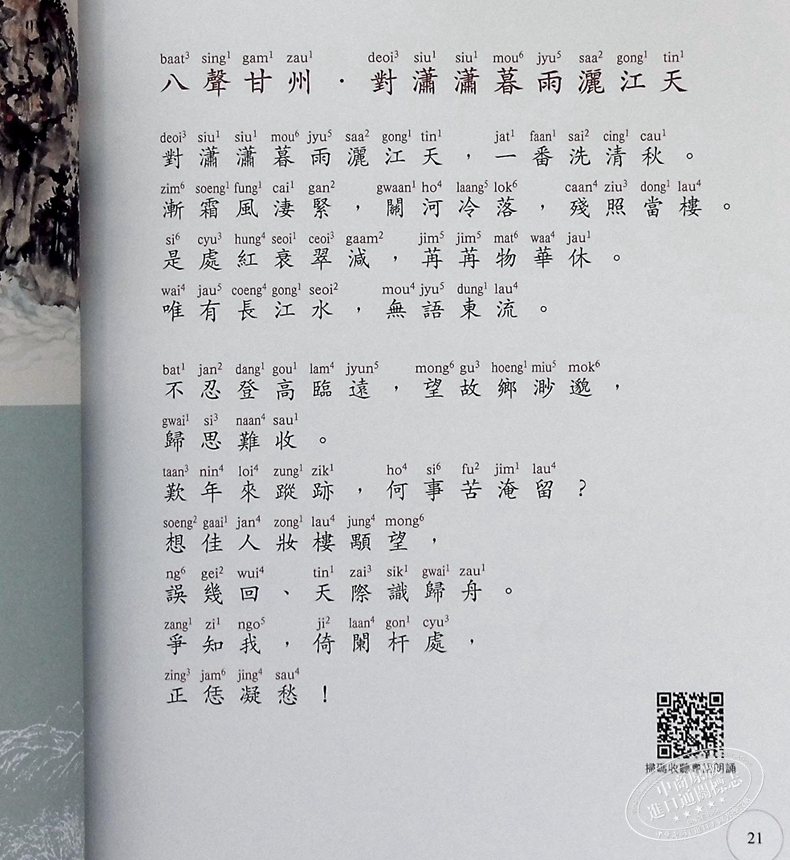 baat³ sing¹ gam¹ zau¹ deoi³ siu¹ siu¹ mou⁶ jyu⁵ saa² gong¹ tin¹
八聲甘州·對瀟瀟暮雨灑江天
deoi³ siu¹ siu¹ mou⁶ jyu⁵ saa² gong¹ tin¹ jat¹ faan¹ sai² cing¹ cau¹
對瀟瀟暮雨灑江天，一番洗清秋。
zim⁶ soeng¹ fung¹ cai¹ gan² gwaan¹ ho⁴ laang⁵ lok⁶ caan⁴ ziu³ dong¹ lau⁴
漸霜風淒緊，關河冷落，殘照當樓。
si⁶ cyu³ hung⁴ seoi¹ ceoi³ gaam² jim⁵ jim⁵ mat⁶ waa⁴ jau¹
是處紅衰翠減，苒苒物華休。
wai⁴ jau⁵ coeng⁴ gong¹ seoi² mou⁴ jyu⁵ dung¹ lau⁴
唯有長江水，無語東流。
bat¹ jan² dang¹ gou¹ lam⁴ jyun⁵ mong⁶ gu³ hoeng¹ miu⁵ mok⁶
不忍登高臨遠，望故鄉渺邈，
gwai¹ si³ naan⁴ sau¹
歸思難收。
taan³ nin⁴ loi⁴ zung¹ zik¹ ho⁴ si⁶ fu² jim¹ lau⁴
歎年來蹤跡，何事苦淹留？
soeng² gaai¹ jan⁴ zong¹ lau⁴ jung⁴ mong⁶
想佳人妝樓顒望，
ng⁶ gei² wui⁴ tin¹ zai³ sik¹ gwai¹ zau¹
誤幾回、天際識歸舟。
zang¹ zi¹ ngo⁵ ji² laan⁴ gon¹ cyu³
爭知我，倚闌杆處，
zing³ jam⁶ jing⁴ sau⁴
正恁凝愁！
21